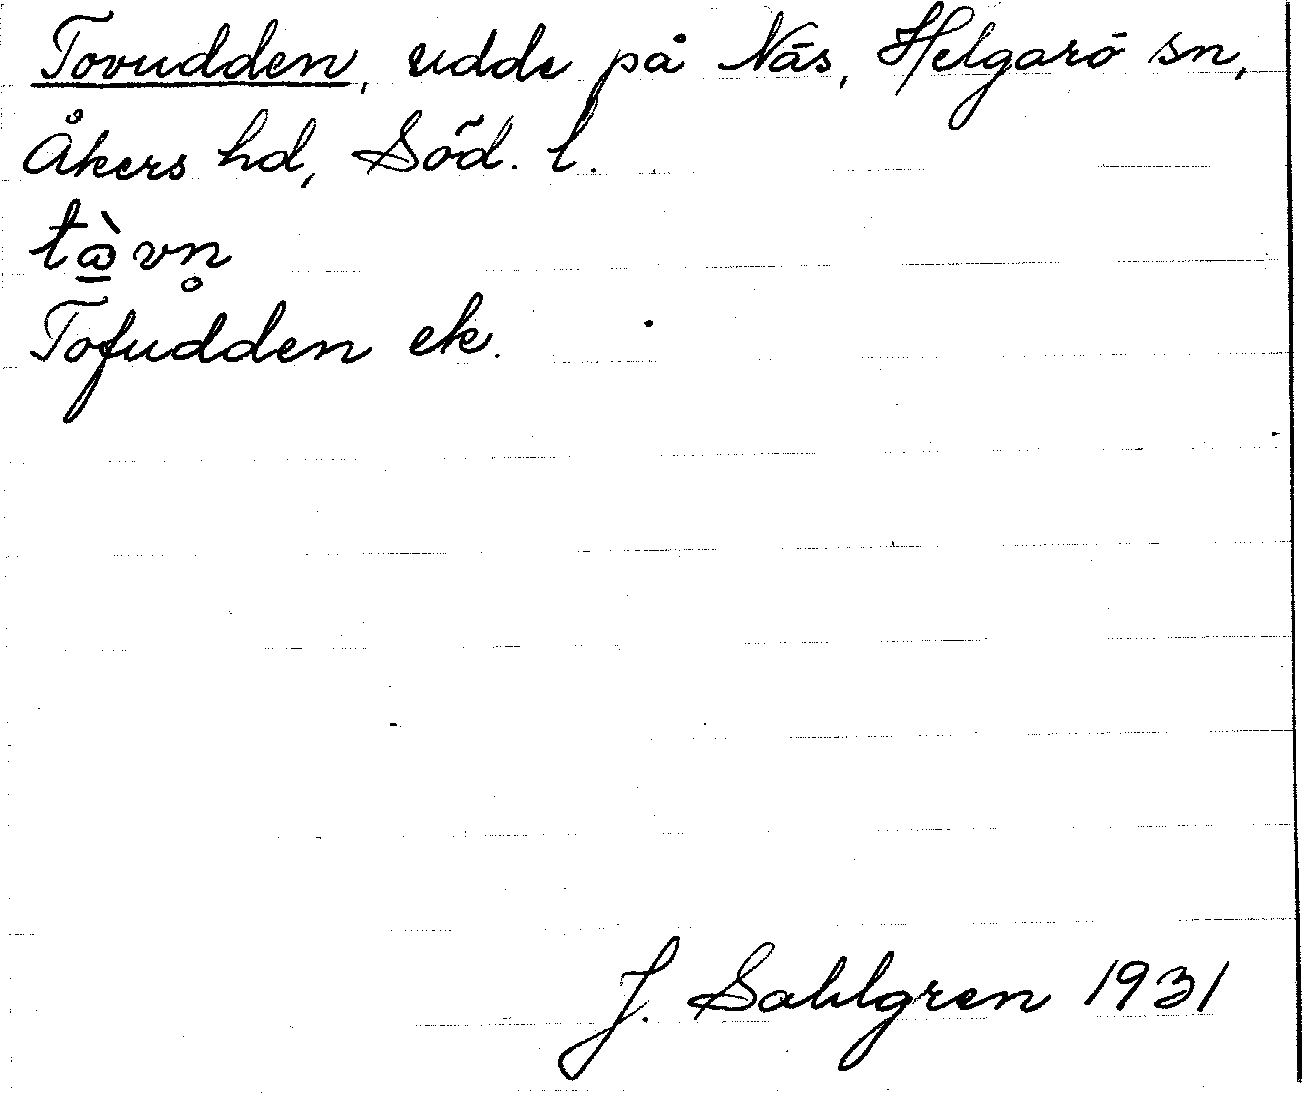 Tovudden, udde på Näs, Helgarö sn,
Åkers hd, Söd. l.
tə̱̀vn̥
Tofudden ek.
J. Sahlgren 1931